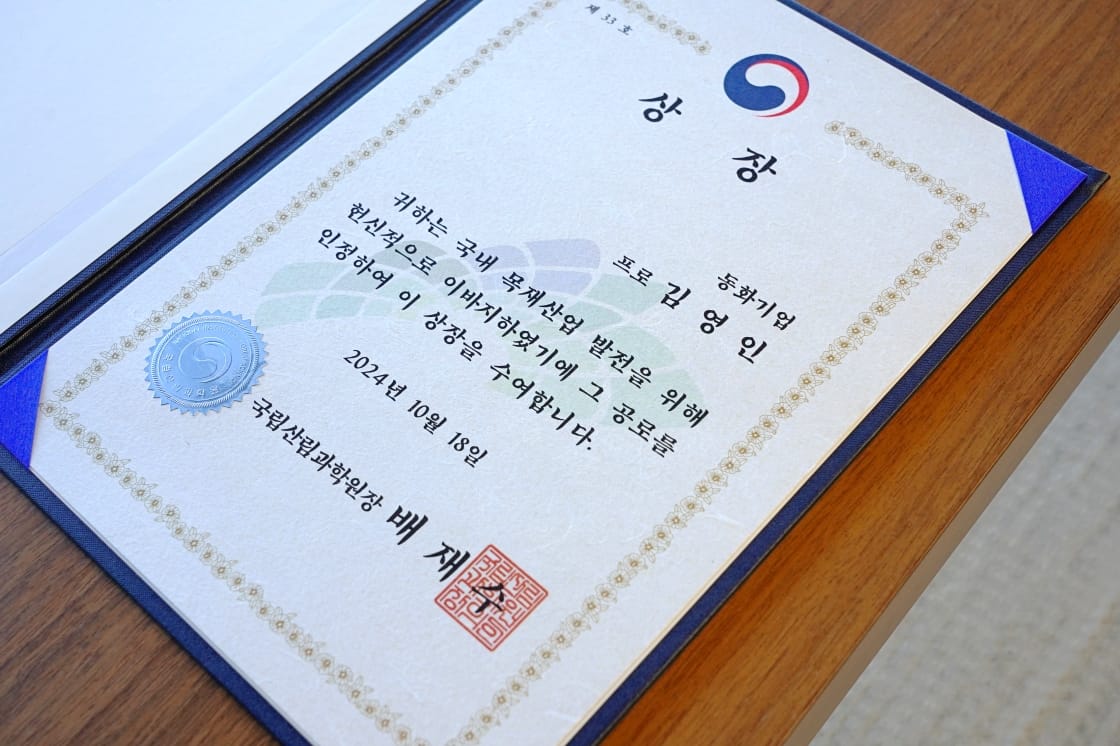 제 33 호
상 장
동화기업
프로 김 영 인
귀하는 국내 목재산업 발전을 위해
헌신적으로 이바지하였기에 그 공로를
인정하여 이 상장을 수여합니다.
2024년 10월 18일
국립산림과학원장 배 재 수